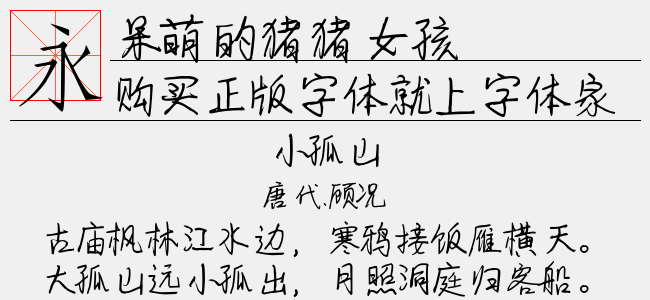 永
呆萌的猪猪女孩
购买正版字体就上字体家
小孤山
唐代.顾况
古庙枫林江水边，寒鸦接饭雁横天。
大孤山远小孤出，月照洞庭归客船。